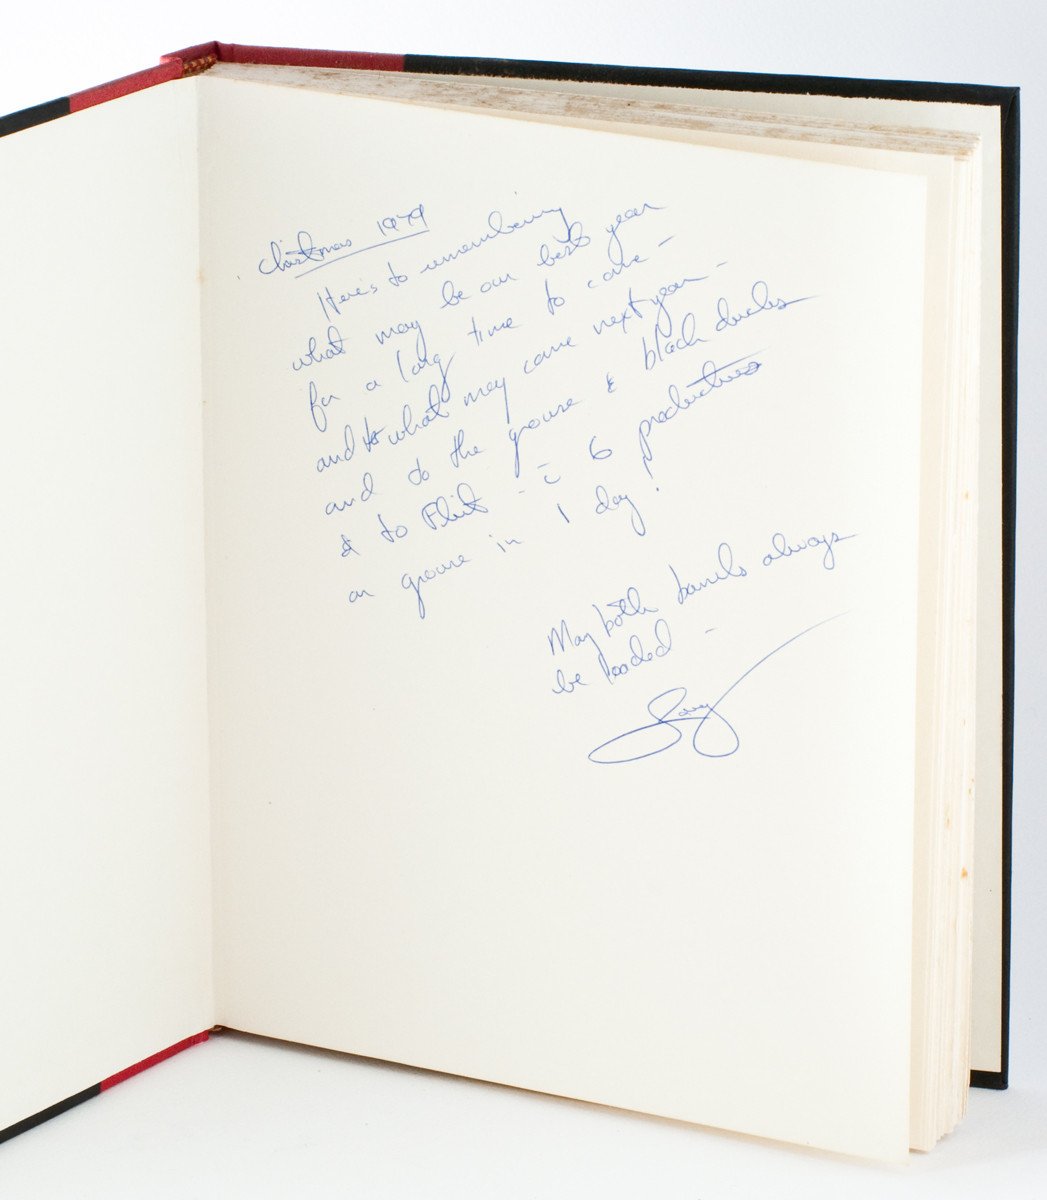 Christmas 1979
Here's to remembering
what may be our best year
for a long time to come -
and to what may come next year -
and to the grouse & black ducks
& to Flint - c̄ 6 productives
on grouse in 1 day!
May both barrels always
be loaded -
Gary